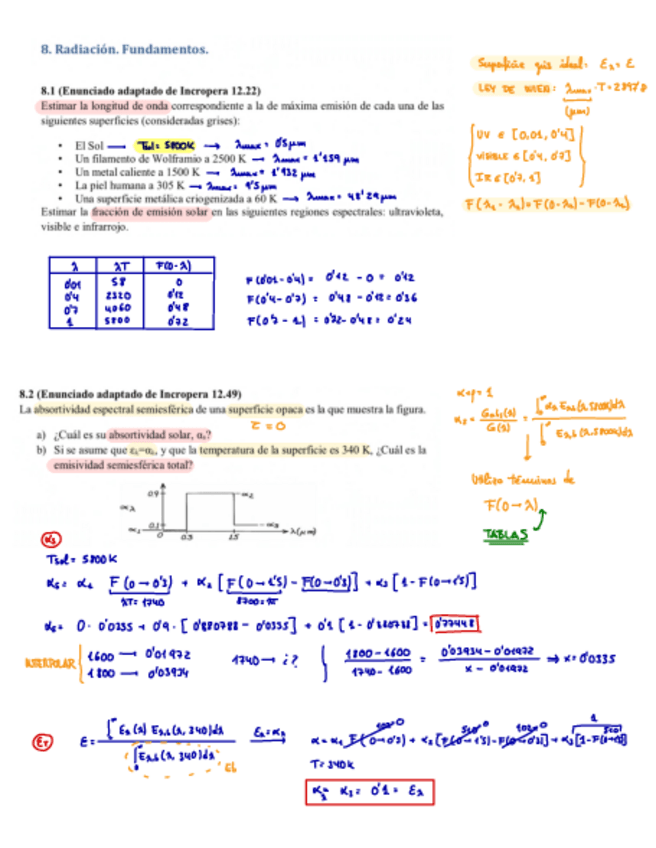 8. Radiación. Fundamentos.
Superficie gris ideal: ελ = ε
8.1 (Enunciado adaptado de Incropera 12.22)
LEY DE WIEN: λmax · T = 2897'8
(μm)
Estimar la longitud de onda correspondiente a la de máxima emisión de cada una de las
siguientes superficies (consideradas grises):
• El Sol → Tsol = 5800K → λmax = 0'5 μm
• Un filamento de Wolframio a 2500 K → λmax = 1'159 μm
• Un metal caliente a 1500 K → λmax = 1'932 μm
• La piel humana a 305 K → λmax = 9'5 μm
• Una superficie metálica criogenizada a 60 K → λmax = 48'29 μm
UV ∈ [0,01, 0'4]
VISIBLE ∈ [0'4, 0'7]
IR ∈ [0'7, 1]
F(λ1 - λ2) = F(0-λ2) - F(0-λ1)
Estimar la fracción de emisión solar en las siguientes regiones espectrales: ultravioleta,
visible e infrarrojo.
λ λT F(0-λ)
0'01 58 0
0'4 2320 0'12
0'7 4060 0'48
1 5800 0'72
F(0'01-0'4) = 0'12 - 0 = 0'12
F(0'4-0'7) = 0'48 - 0'12 = 0'36
F(0'7 - 1) = 0'72 - 0'48 = 0'24
8.2 (Enunciado adaptado de Incropera 12.49)
La absortividad espectral semiesférica de una superficie opaca es la que muestra la figura.
τ = 0
a) ¿Cuál es su absortividad solar, αs?
b) Si se asume que ελ=αλ, y que la temperatura de la superficie es 340 K, ¿Cuál es la
emisividad semiesférica total?
α+ρ = 1
αs = Gabs(λ) / G(λ) = ∫ αλ Eλb(λ,5800K)dλ / ∫ Eλb(λ,5800K)dλ
Utilizo términos de
F(0→λ)
TABLAS
αλ 0.9 α2
α1 0.1 α3
0 0.3 1.5 λ(μm)
αs
Tsol = 5800K
αs = α1 F(0→0'3) + α2 [F(0→1'5) - F(0→0'3)] + α3 [1 - F(0→1'5)]
λT = 1740 8700 = λT
αs = 0 · 0'0335 + 0'9 · [0'880788 - 0'0335] + 0'1 [1 - 0'880788] = 0'77448
INTERPOLAR
1600 → 0'01972
1800 → 0'03934
1740 → ¿?
1800 - 1600 / 1740 - 1600 = 0'03934 - 0'01972 / x - 0'01972 ⇒ x = 0'0335
ετ
ε = ∫ Eλ(λ) Eλb(λ,340)dλ / ∫ Eλb(λ,340)dλ
Eb
ελ = αλ
α = α1 F(0→0'3) + α2 [F(0→1'5) - F(0→0'3)] + α3 [1 - F(0→1'5)]
T = 340K
α3 = 0'1 = ελ